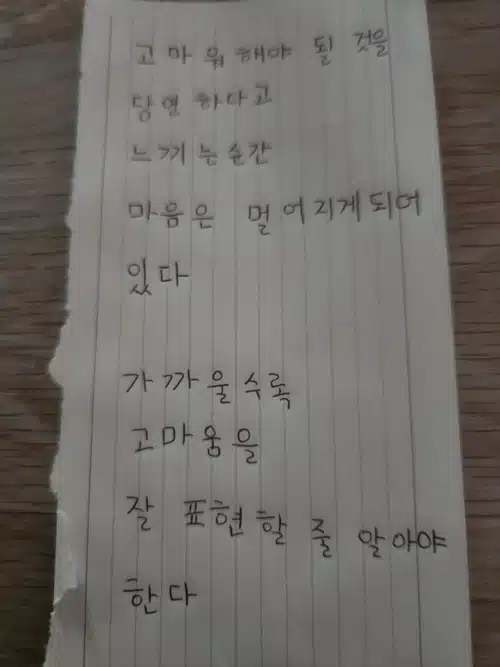 고마워해야 될 것을
당연하다고
느끼는순간
마음은 멀어지게되어
있다
가까울수록
고마움을
잘 표현할 줄 알아야
한다